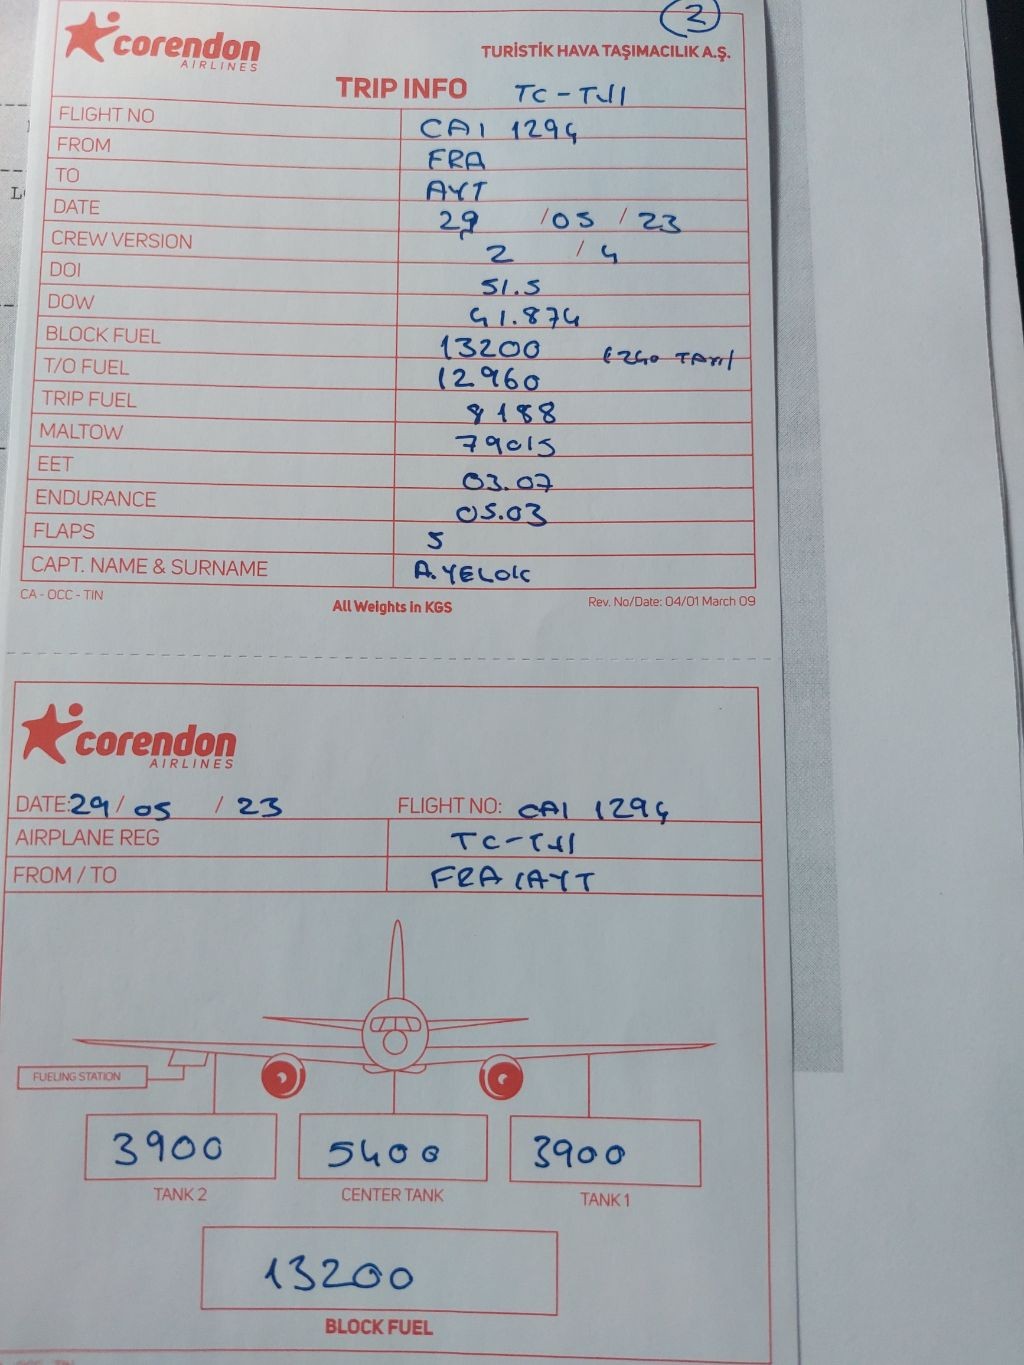 2
corendon
AIRLINES
TURİSTİK HAVA TAŞIMACILIK A.Ş.
TRIP INFO TC-TJI
FLIGHT NO CAI 1294
FROM FRA
TO AYT
DATE 29 / 05 / 23
CREW VERSION 2 / 4
DOI 51.5
DOW 41.874
BLOCK FUEL 13200
T/O FUEL 12960 (240 TAXI
TRIP FUEL 8188
MALTOW 79015
EET 03.07
ENDURANCE 05.03
FLAPS 5
CAPT. NAME & SURNAME A.YELOK
CA - OCC - TIN All Weights in KGS Rev. No/Date: 04/01 March 09
corendon
AIRLINES
DATE: 29 / 05 / 23 FLIGHT NO: CAI 1294
AIRPLANE REG TC-TJI
FROM / TO FRA / AYT
FUELING STATION
3900 5400 3900
TANK 2 CENTER TANK TANK 1
13200
BLOCK FUEL